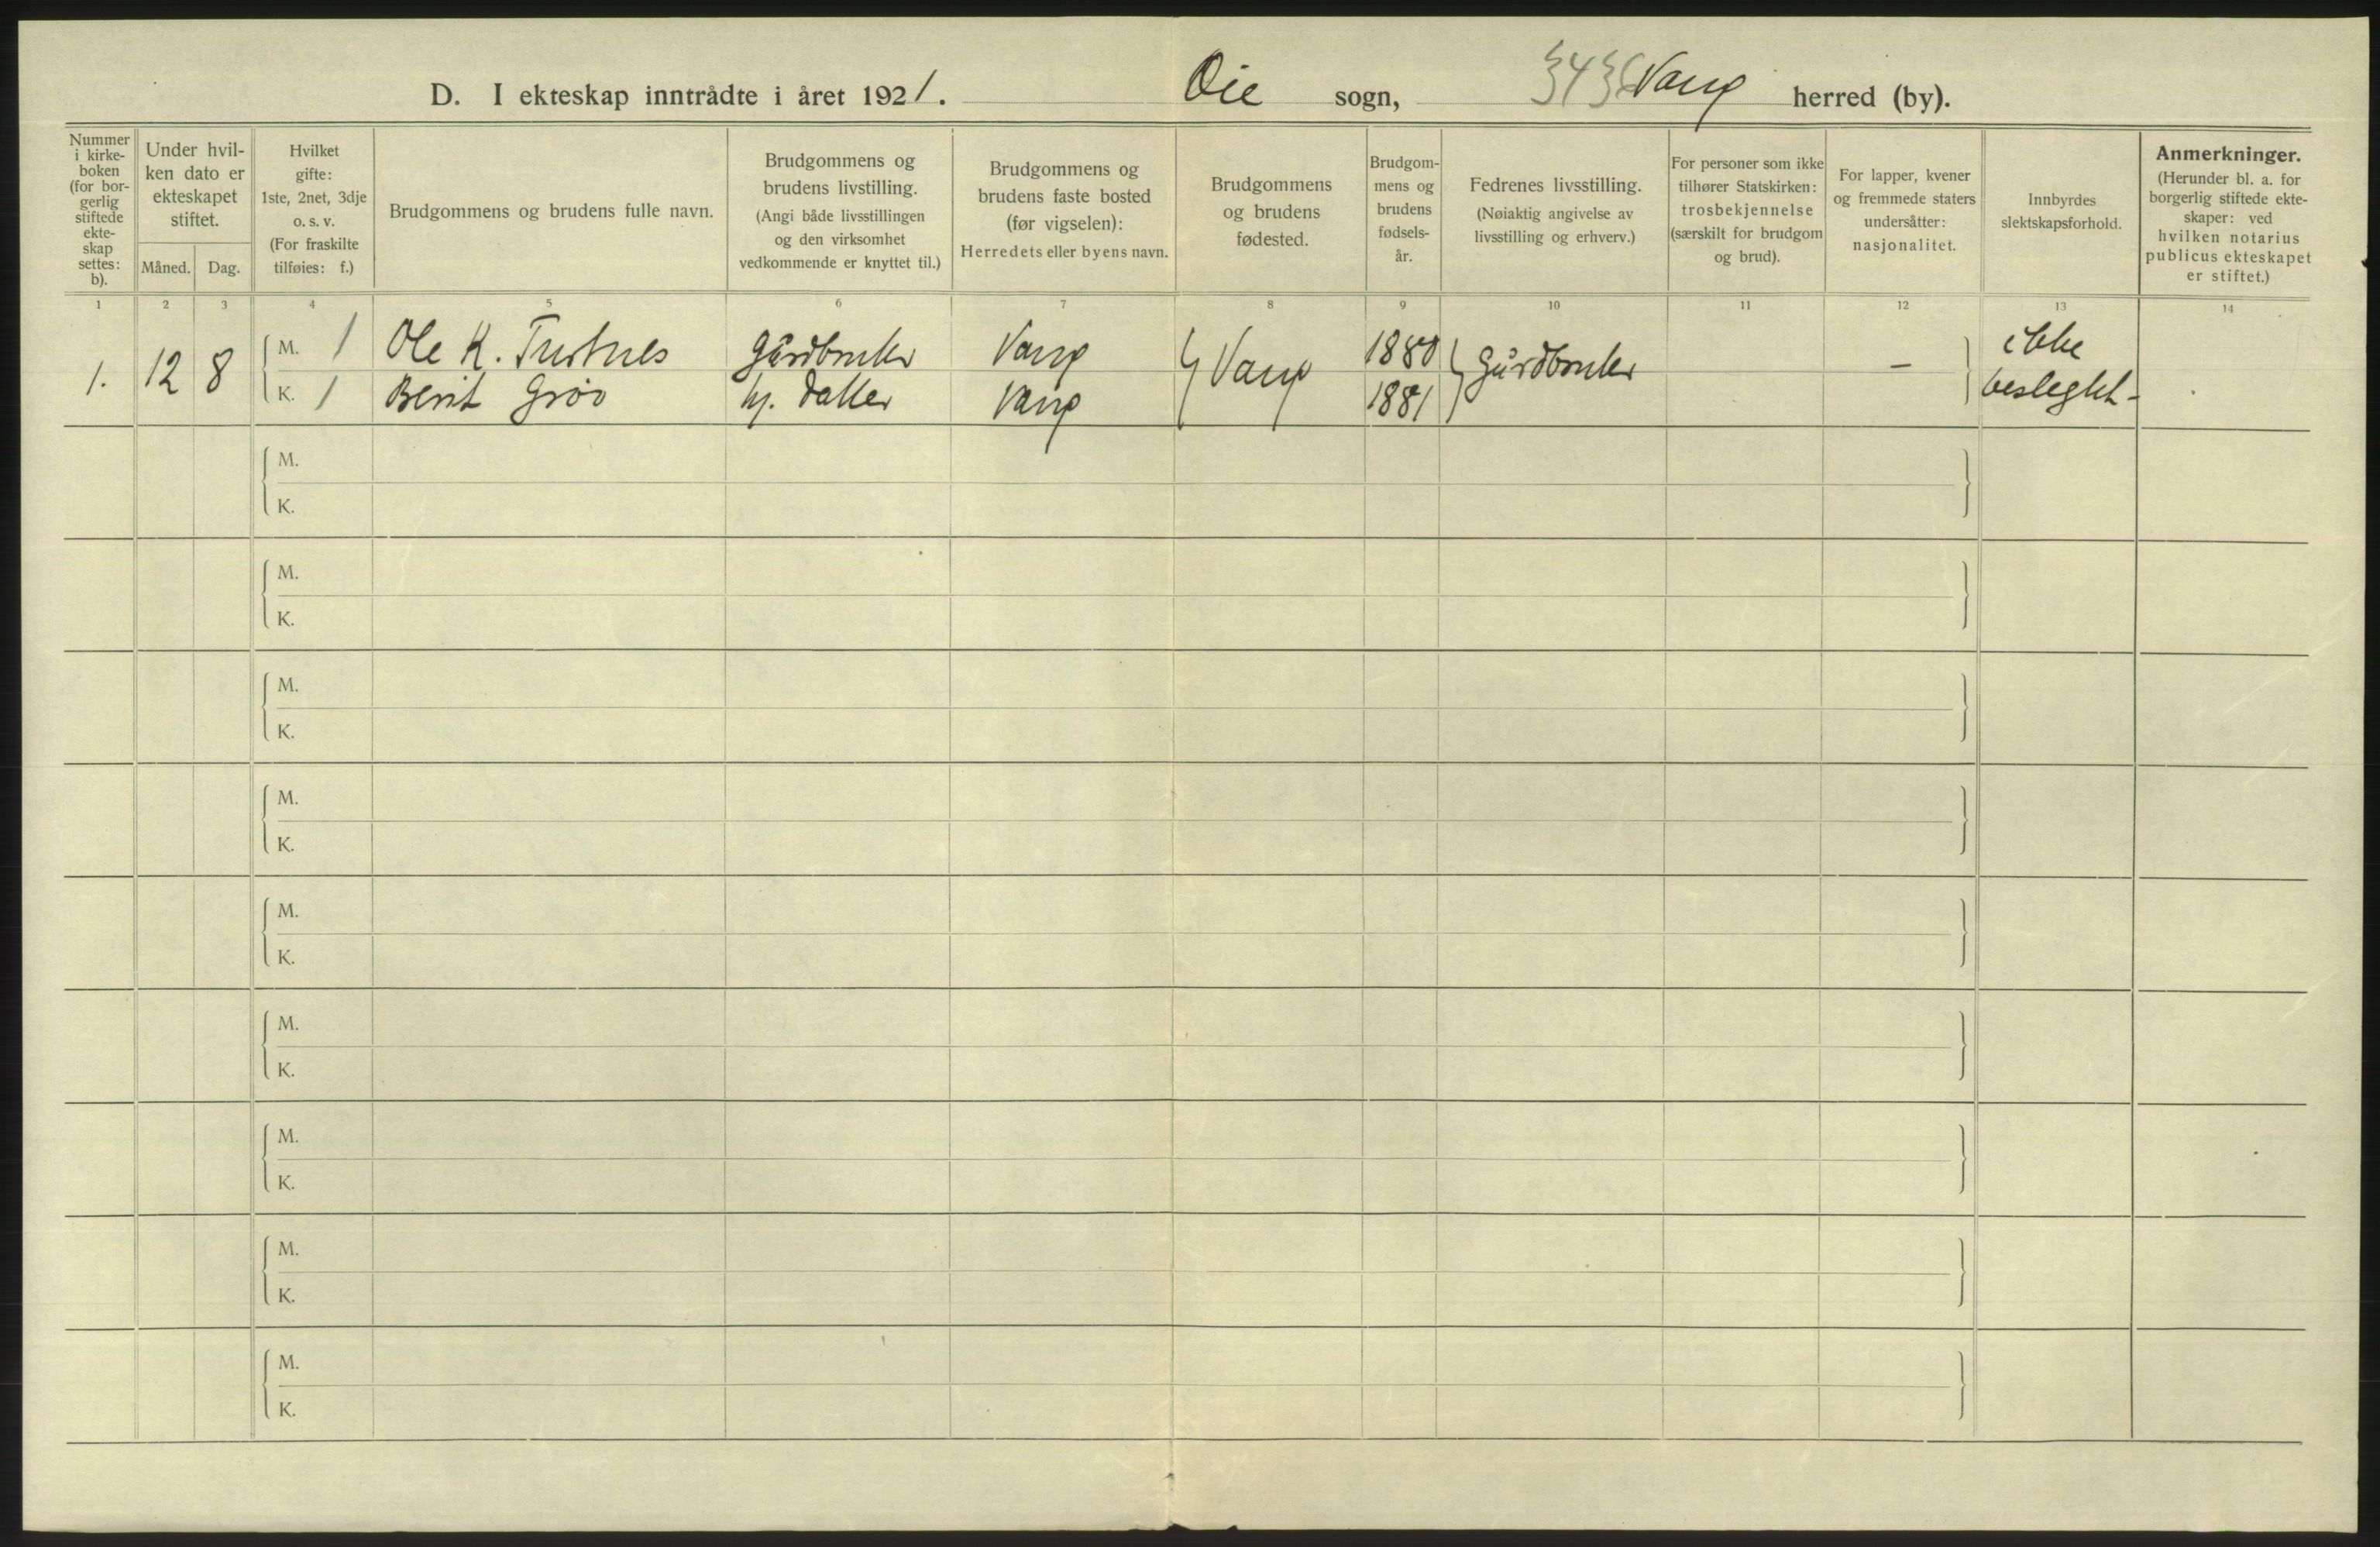 D. I ekteskap inntrådte i året 1921. Øie sogn, Vang herred (by).
Nummer i kirke-boken (for bor-gerlig stiftede ekte-skap settes: b).
Under hvil-ken dato er ekteskapet stiftet.
Måned. Dag.
Hvilket gifte: 1ste, 2net, 3dje o. s. v. (For fraskilte tilføies: f.)
Brudgommens og brudens fulle navn.
Brudgommens og brudens livstilling. (Angi både livsstillingen og den virksomhet vedkommende er knyttet til.)
Brudgommens og brudens faste bosted (før vigselen): Herredets eller byens navn.
Brudgommens og brudens fødested.
Brudgom-mens og brudens fødsels-år.
Fedrenes livsstilling. (Nøiaktig angivelse av livsstilling og erhverv.)
For personer som ikke tilhører Statskirken: trosbekjennelse (særskilt for brudgom og brud).
For lapper, kvener og fremmede staters undersåtter: nasjonalitet.
Innbyrdes slektskapsforhold.
Anmerkninger. (Herunder bl. a. for borgerlig stiftede ekte-skaper: ved hvilken notarius publicus ekteskapet er stiftet.)
1 2 3 4 5 6 7 8 9 10 11 12 13 14
1. 12 8 M. 1 Ole K. Gårdbruker Vang Vang 1880 Gårdbruker – ikke
K. 1 Berit Grøv Vang 1881 beslegtet -
M.
K.
M.
K.
M.
K.
M.
K.
M.
K.
M.
K.
M.
K.
M.
K.
M.
K.